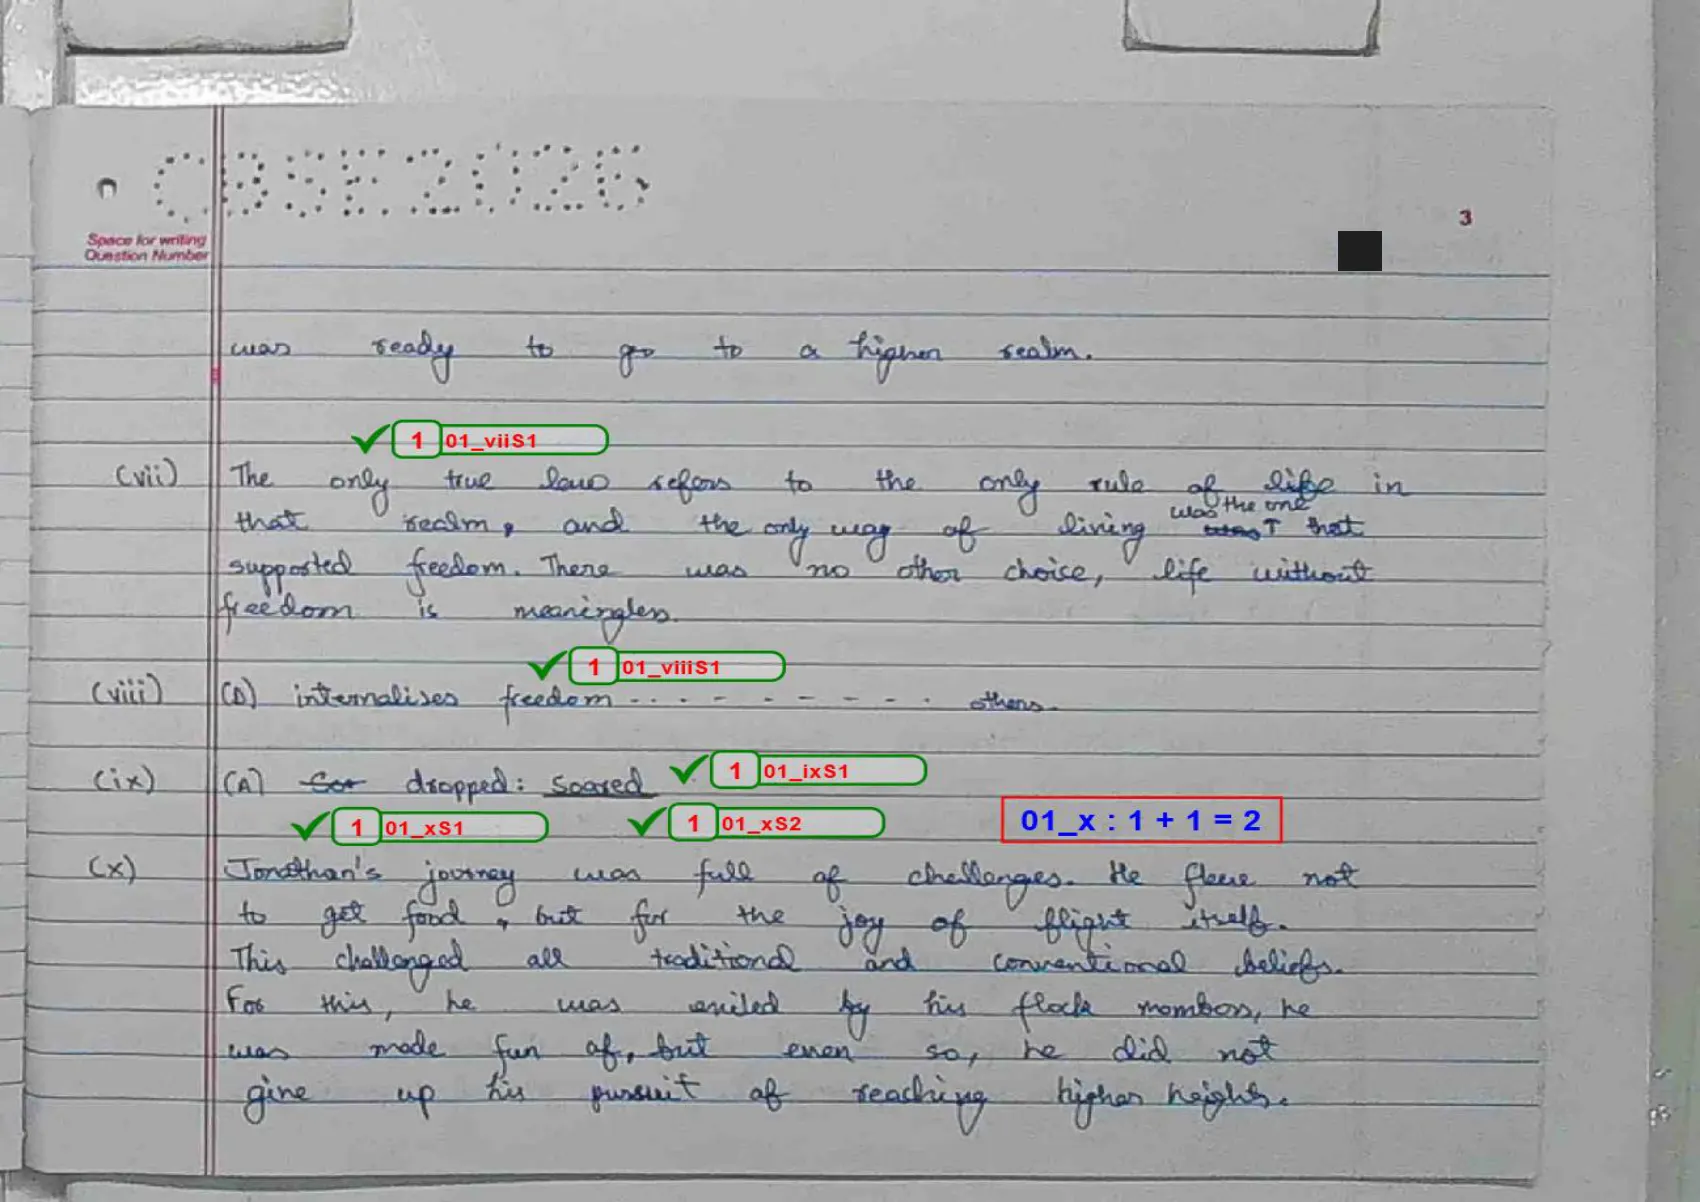 CBSE2026
Space for writing
Question Number
3
was ready to go to a higher realm.
1 01_viiS1
(vii) The only true law refers to the only rule of life in
that realm, and the only way of living was the one that
supported freedom. There was no other choice, life without
freedom is meaningless.
1 01_viiiS1
(viii) (D) internalises freedom .......... others.
(ix) (A) dropped: soared 1 01_ixS1
1 01_xS1 1 01_xS2 01_x : 1 + 1 = 2
(x) Jonathan's journey was full of challenges. He flew not
to get food, but for the joy of flight itself.
This challenged all traditional and conventional beliefs.
For this, he was exiled by his flock members, he
was made fun of, but even so, he did not
give up his pursuit of reaching higher heights.